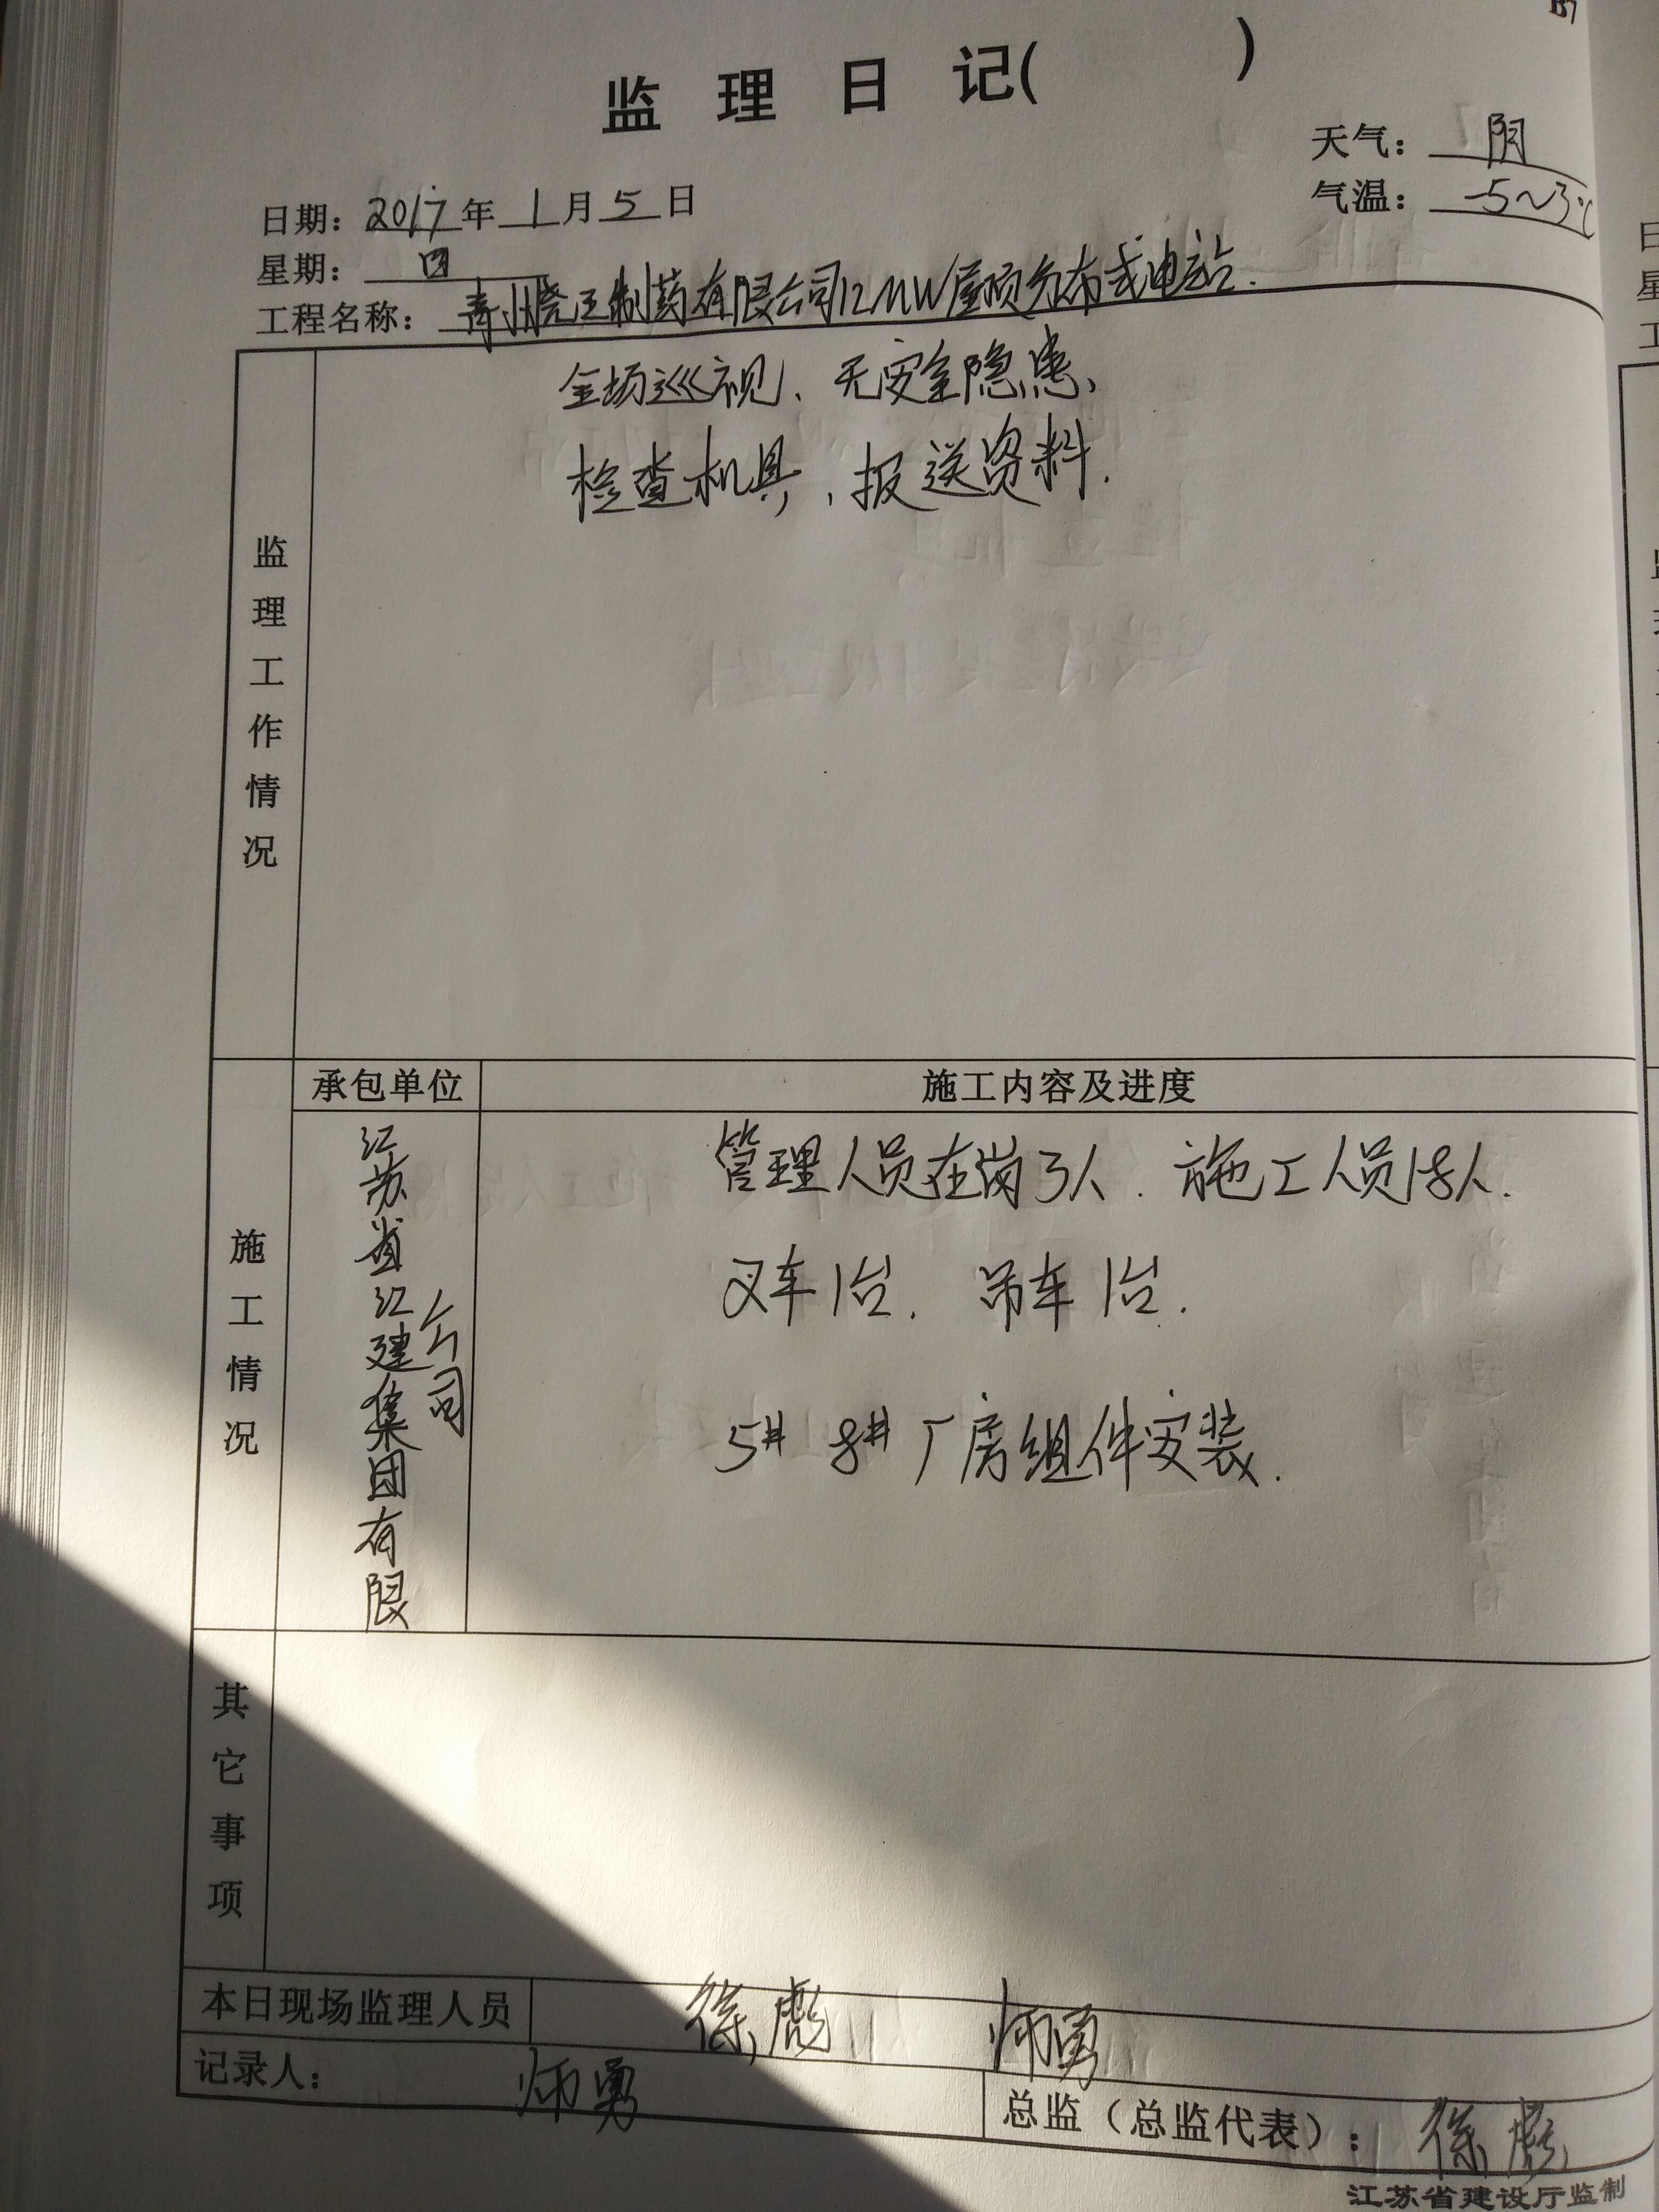 监 理 日 记(          )
天气：阴
日期：2017年1月5日
气温：-5~3℃
星期：四
工程名称：青州尧王制药有限公司12MW屋顶分布式电站.
监理工作情况
全场巡视、无安全隐患、
检查机具，报送资料.
施工情况
承包单位
施工内容及进度
江苏省江建集团有限公司
管理人员在岗3人. 施工人员18人.
叉车1台. 吊车1台.
5# 8# 厂房组件安装.
其它事项
本日现场监理人员 徐彪 师勇
记录人：师勇
总监（总监代表）：徐彪
江苏省建设厅监制